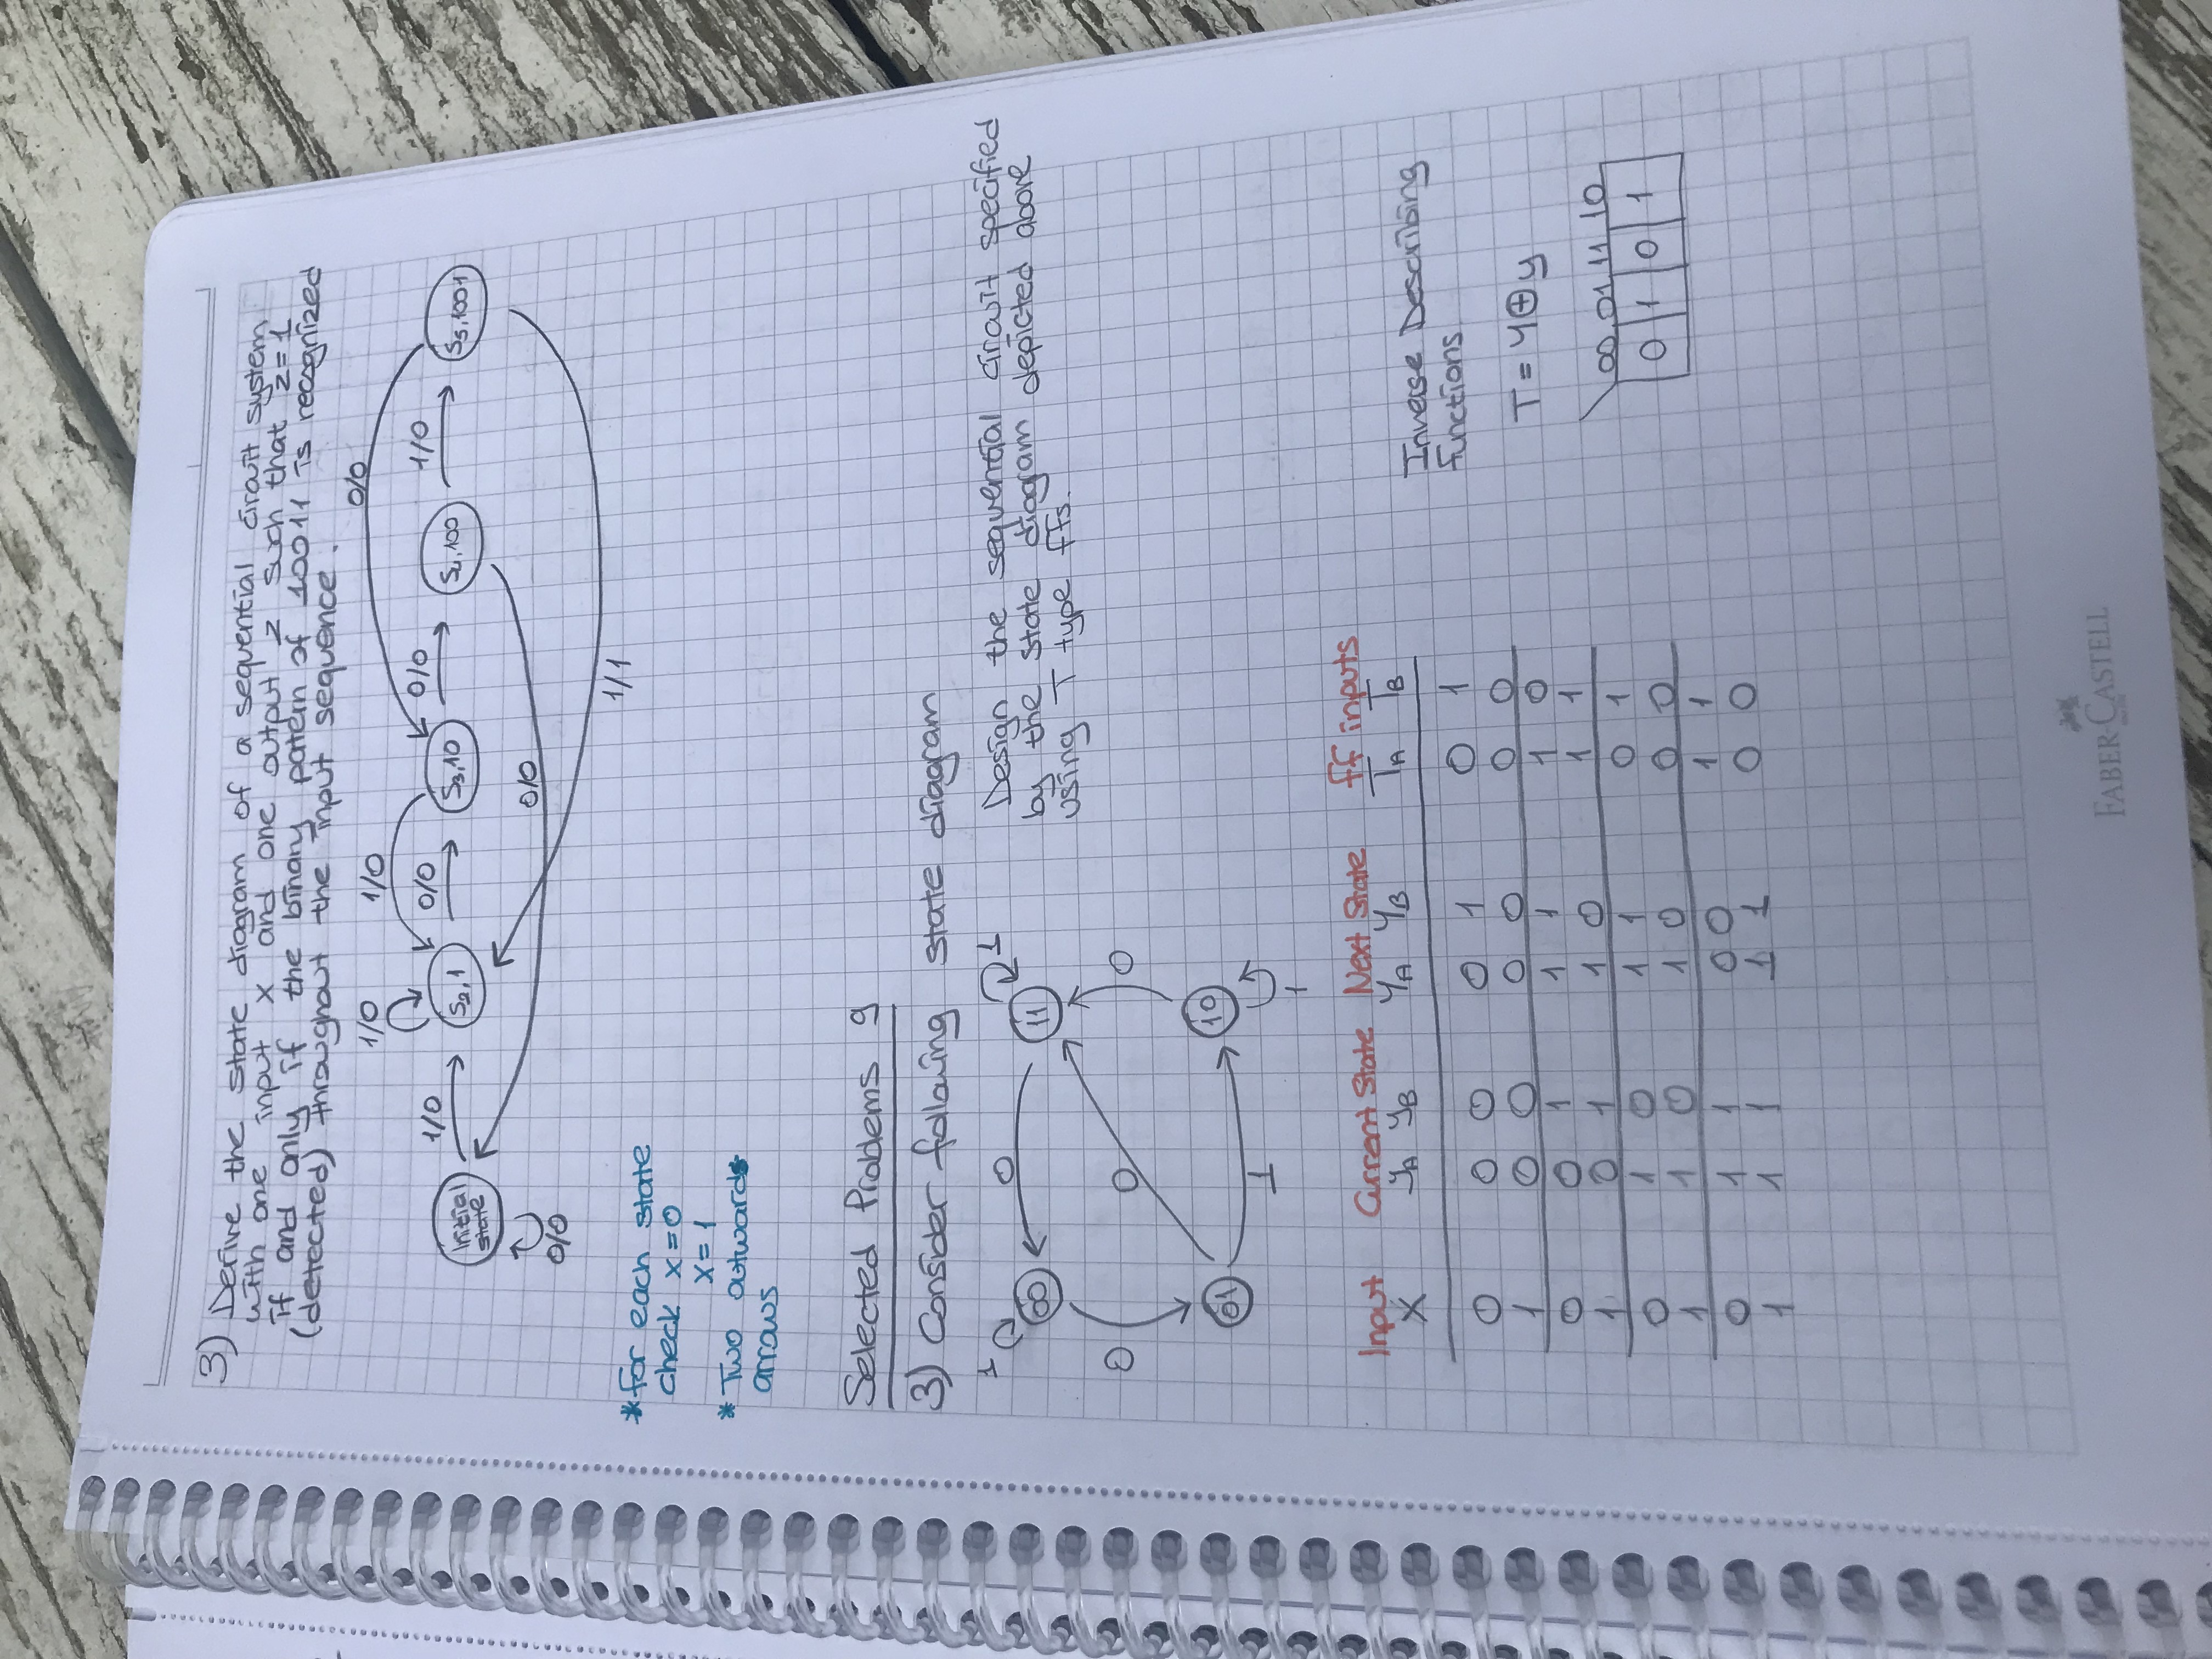 3) Derive the state diagram of a sequential circuit system
with one input x and one output z such that z=1
if and only if the binary patern of 10011 is recognized
(detected) throughout the input sequence.
0/0
1/0 1/0
1/0 0/0 0/0 1/0
Initial
state
S2,1 S3,10 S4,100 S5,1001
0/0
0/0
1/1
*for each state
check x=0
x=1
*Two outwards
arrows
Selected Problems 9
3) Consider following state diagram
1 0 1
00 11
0 0 0
01 10
1
1
Design the sequential circuit specified
by the state diagram depicted above
using T type ffs.
Input Current State Next State ff inputs
X yA yB YA YB TA TB
0 0 0 0 1 0 1
1 0 0 0 0 0 0
0 0 1 1 1 1 0
1 0 1 1 0 1 1
0 1 0 1 1 0 1
1 1 0 1 0 0 0
0 1 1 0 0 1 1
1 1 1 1 1 0 0
Inverse Describing
functions.
T = Y⊕y
00 01 11 10
0 1 0 1
FABER-CASTELL